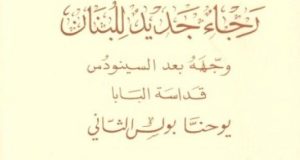 رَجَاءٌ جَديدٌ لِلُبْنَان
وجّههُ بعد السينودُس
قداسة البابا
يوحنّا بولس الثاني